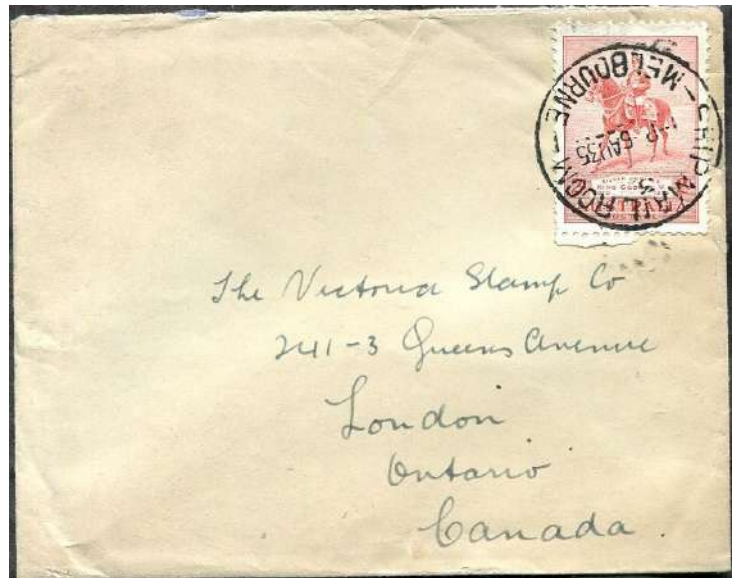 SHIP MAIL ROOM
- MELBOURNE -
6AU35
KING GEORGE V
The Victoria Stamp Co
241-3 Queens Avenue
London
Ontario
Canada.